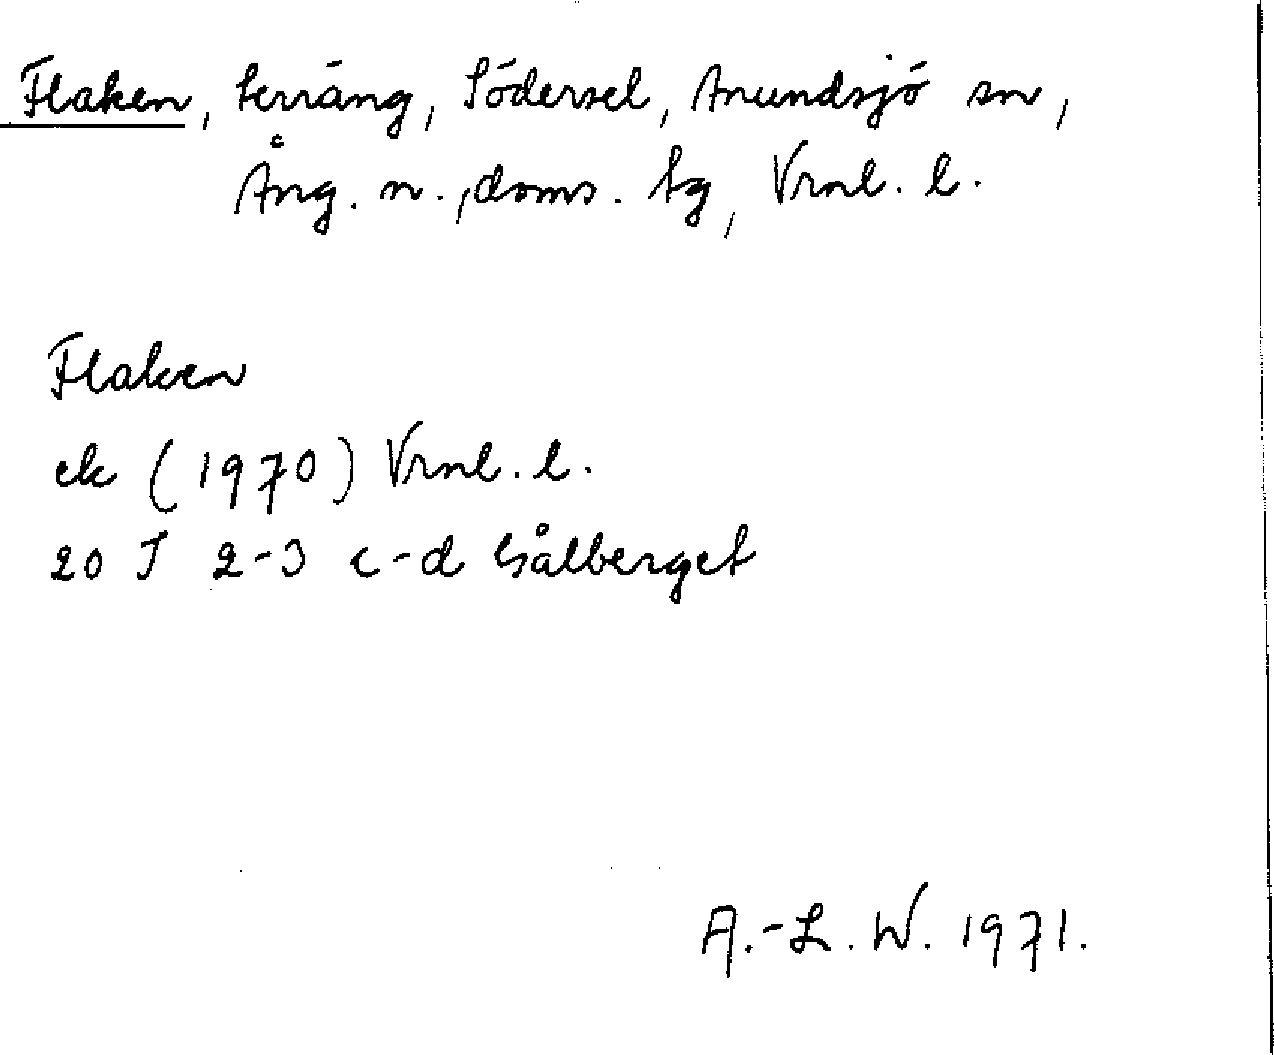 Flaken, terräng, Södersel, Anundsjö sn,
Ång. n., doms. tg, Vrnl. l.
Flaken
ek (1970) Vrnl. l.
20 J 2-3 c-d Gålberget
A.-L. W. 1971.